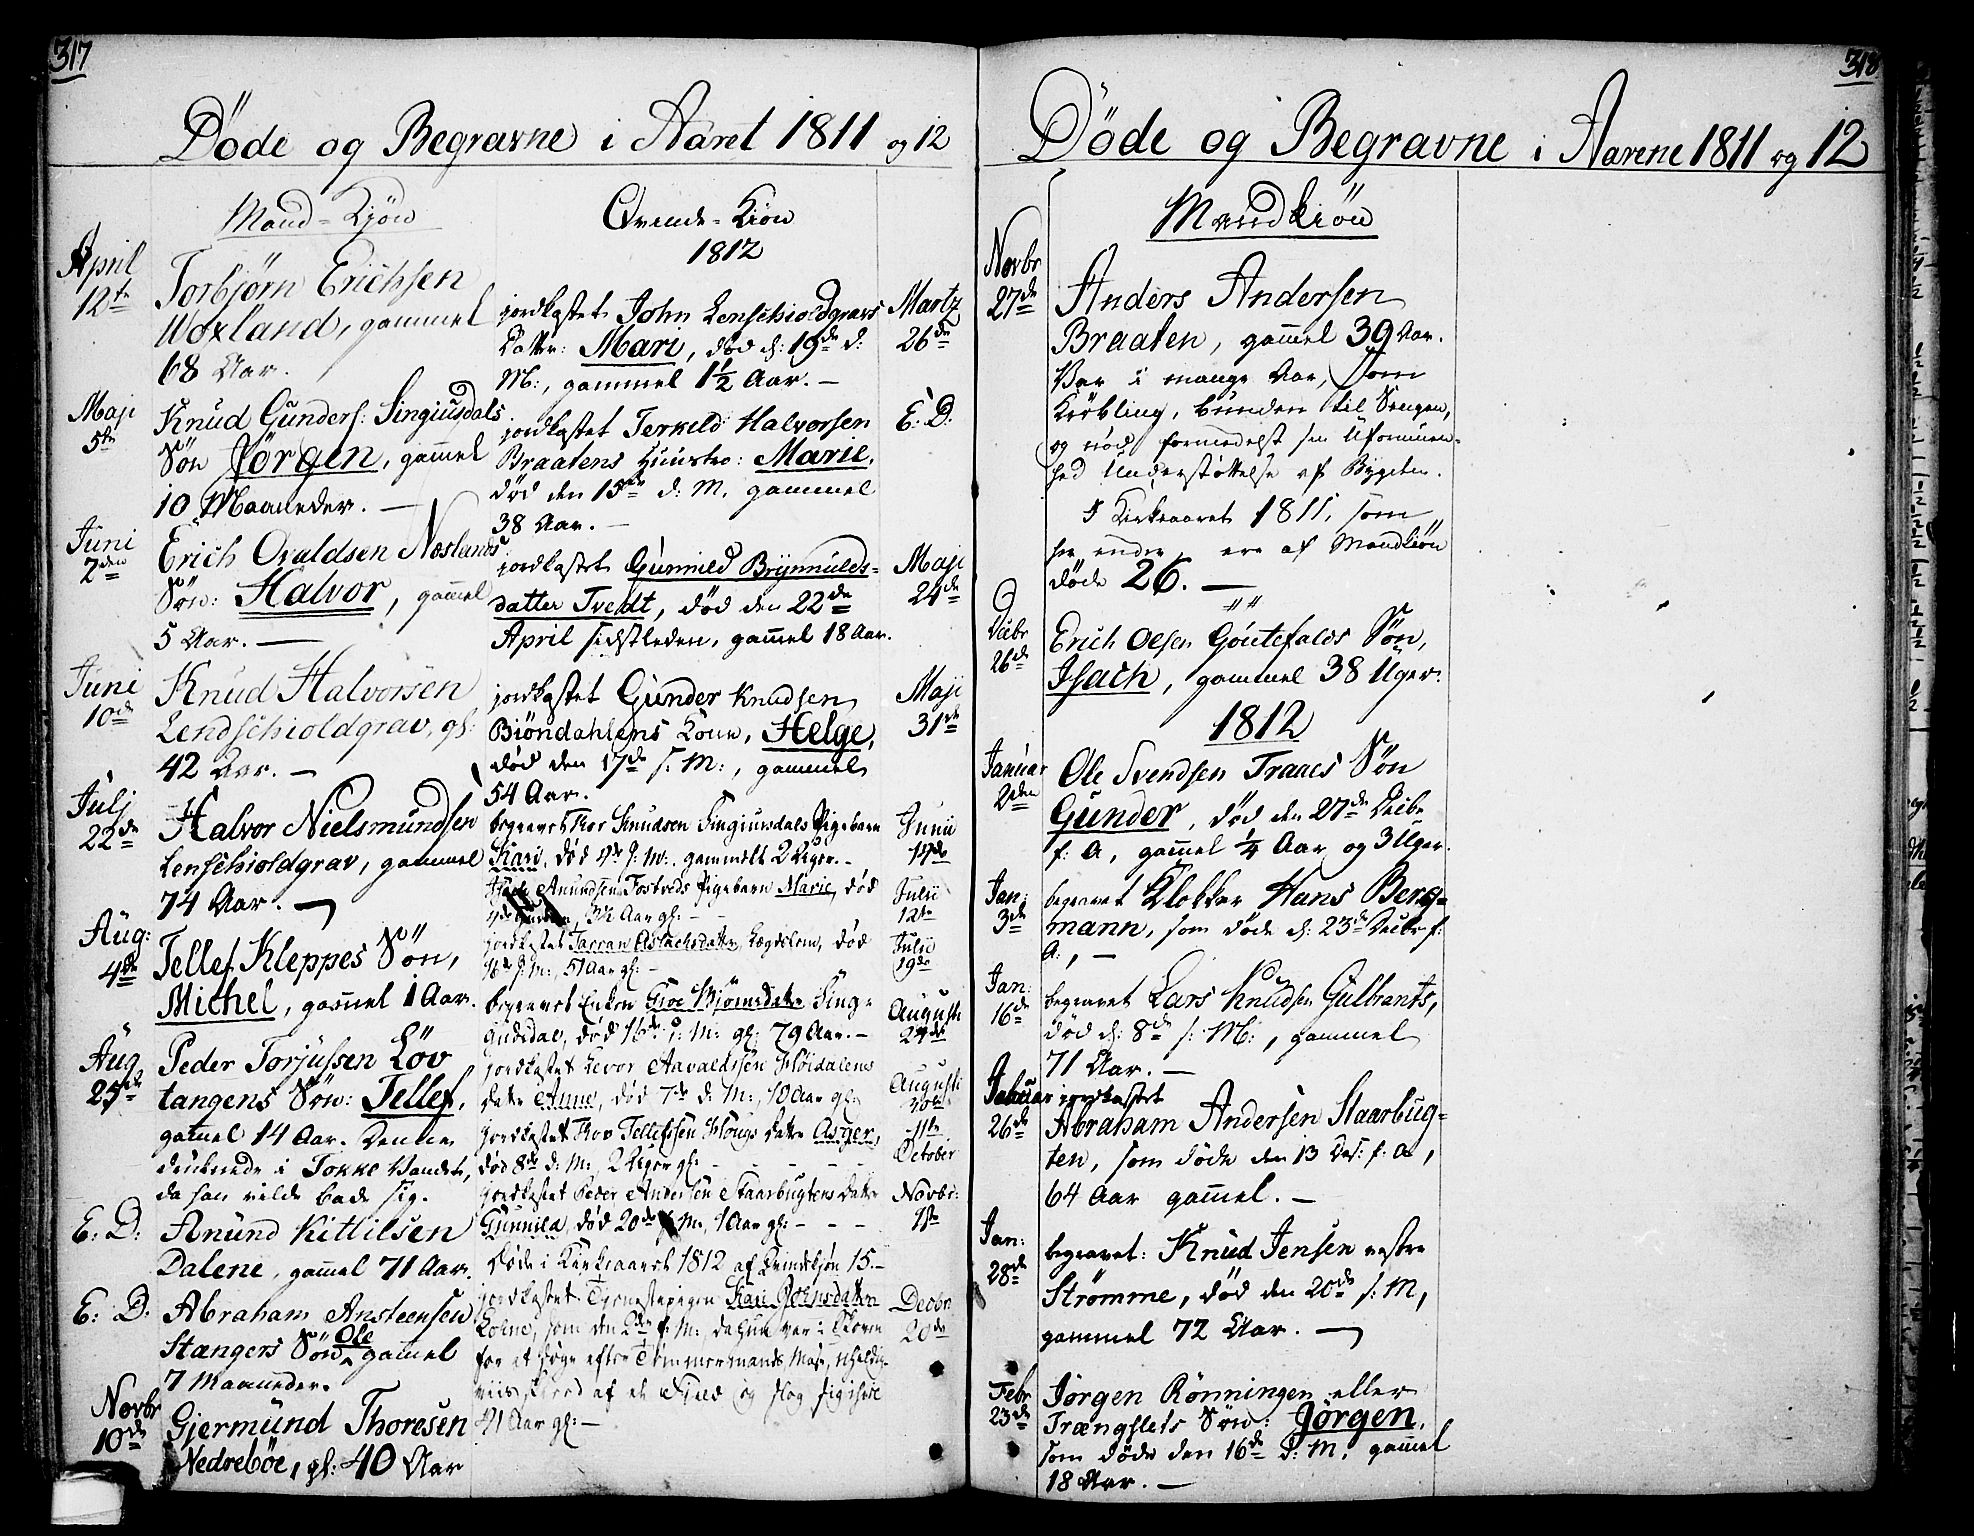 317
Døde og Begravne i Aaret 1811 og 12
Mand-Kjön
April
12te
Torbjörn Erichsen
Woxland, gammel
68 Aar.
Maji
5te
Knud Gunders: Singiusdals
Sön Jörgen, gam̄el
10 Maaneder. —
Juni
2den
Erich Ovaldsen Næslands
Sön: Halvor, gam̄el
5 Aar. —
Juni
10de
Knud Halvorsen
Lendschioldgrav, gl:
42 Aar. —
Julj
22de
Halvor Nielsmundsen
Lenschioldgrav, gammel
74 Aar. —
Aug:
4de
Tellef Kleppes Sön,
Michel, gam̄el 1 Aar.
Aug
25de
Peder Torjussen Löv
tangens Sön: Tellef,
gam̄el 14 Aar. Denne
druknede i Tokke Vandet,
da han vilde bade sig.
E: D:
Anund Kittilsen
Dalene, gam̄el 71 Aar.
E: D.
Abraham Ansteensen
Stangers Sön Ole gam̄el
7 Maaneder.
Novbr
10de
Gjermund Thoresen
Nedreböe, gl: 40 Aar
Qvinde-Kion
1812
jordkastet John Lenschioldgravs
Datter: Mari, död d: 19de d:
M:, gammel 1½ Aar. —
Martz
26de
jordkastet Terkild Halvorsen
Braatens Huustro: Marie,
död den 15de d: M. gammel
38 Aar. —
E: D:
jordkastet Gunnild Brynnulds-
datter Tvedt, död den 22de
April sidstleden, gam̄el 18 Aar.
Maji
24de
jordkastet Gunder Knudsen
Biöndahlens Kone, Helge,
död den 17de s: M:, gammel
54 Aar.
Maji
31de
begravet Tor Knudsen Singiusdals Pigebarn
Kari, död 4de s: M:, gammelt 2 Uger. —
Junii
14de
Anundsen Tostveds Pigebarn Marie, död
3½ Aar gl: —
Julii
12te
jordkastet Tarran Aslachsdatter, Lægdslem, död
s: M:, 51 Aar gl: —
Julii
19de
begravet Enken Groe Björnsdatter Sing-
iusdal, död 16de s: M: gl: 79 Aar. —
Augusti
24de
jordkastet Levor Aavaldssen Höidalens
datter Anne, död 7de d: M:, 10 Aar gl:
Augusti
jordkastet Tov Tellefssen datter Asger,
död 8de d: M:, 2 Uger gl: — — —
11te
October
jordkastet Peder Andersen Staarbugtens datter
Gunnild, död 20de M:, 1 Aar gl: — — —
Novbr:
1ste
Döde i Kirkeaaret 1812 af Qvindekjön 15. —
jordkastet Tjenestepigen Kari Johnsdatter
som den 2den M:, da hun var i Skoven
for at söge efter Tömmermands Mose, uheldig-
viis af et Træe og slog sig ihiel
41 Aar gl: —
Decbr
20de
318
Döde og Begravne i Aarene 1811 og 12
Mandkiön
Novbr
27de
Anders Andersen
Braaten, gam̄el 39 Aar.
Var i mange Aar, som
Kröbling, bunden til Sengen,
og nöd formedelst sin Uformuen-
hed Understöttelse af Bygden.
I Kirkeaaret 1811, som
her ender, ere af Mandkiön
döde 26. —
Decbr
26de
Erich Olsen Göutefalds Sön,
Isach, gammel 38 Uger:
1812
Januar
2den
Ole Svendsen Traaes Sön
Gunder, död den 27de Decbr
f: A, gam̄el ¼ Aar og 3 Uger.
Jan:
3de
begravet Klokker Hans Berg-
mann, som döde d: 23de Decbr f:
A:, —
Jan:
16de
begravet Lars Knudsen Gulbrants,
död d: 8de s: M:, gammel
71 Aar. —
Januar
26de
jordkastet
Abraham Andersen Staarbug-
ten, som döde den 13 Dec: f: A,
64 Aar gam̄el. —
Jan:
28de
begravet: Knud Jensen vestre
Strømme, död den 20de s: M,
gammel 72 Aar. —
Febr
23de
Jörgen Rönningen eller
Trængslets Sön: Jörgen,
som döde den 16de d: M. gam̄el
18 Aar. —